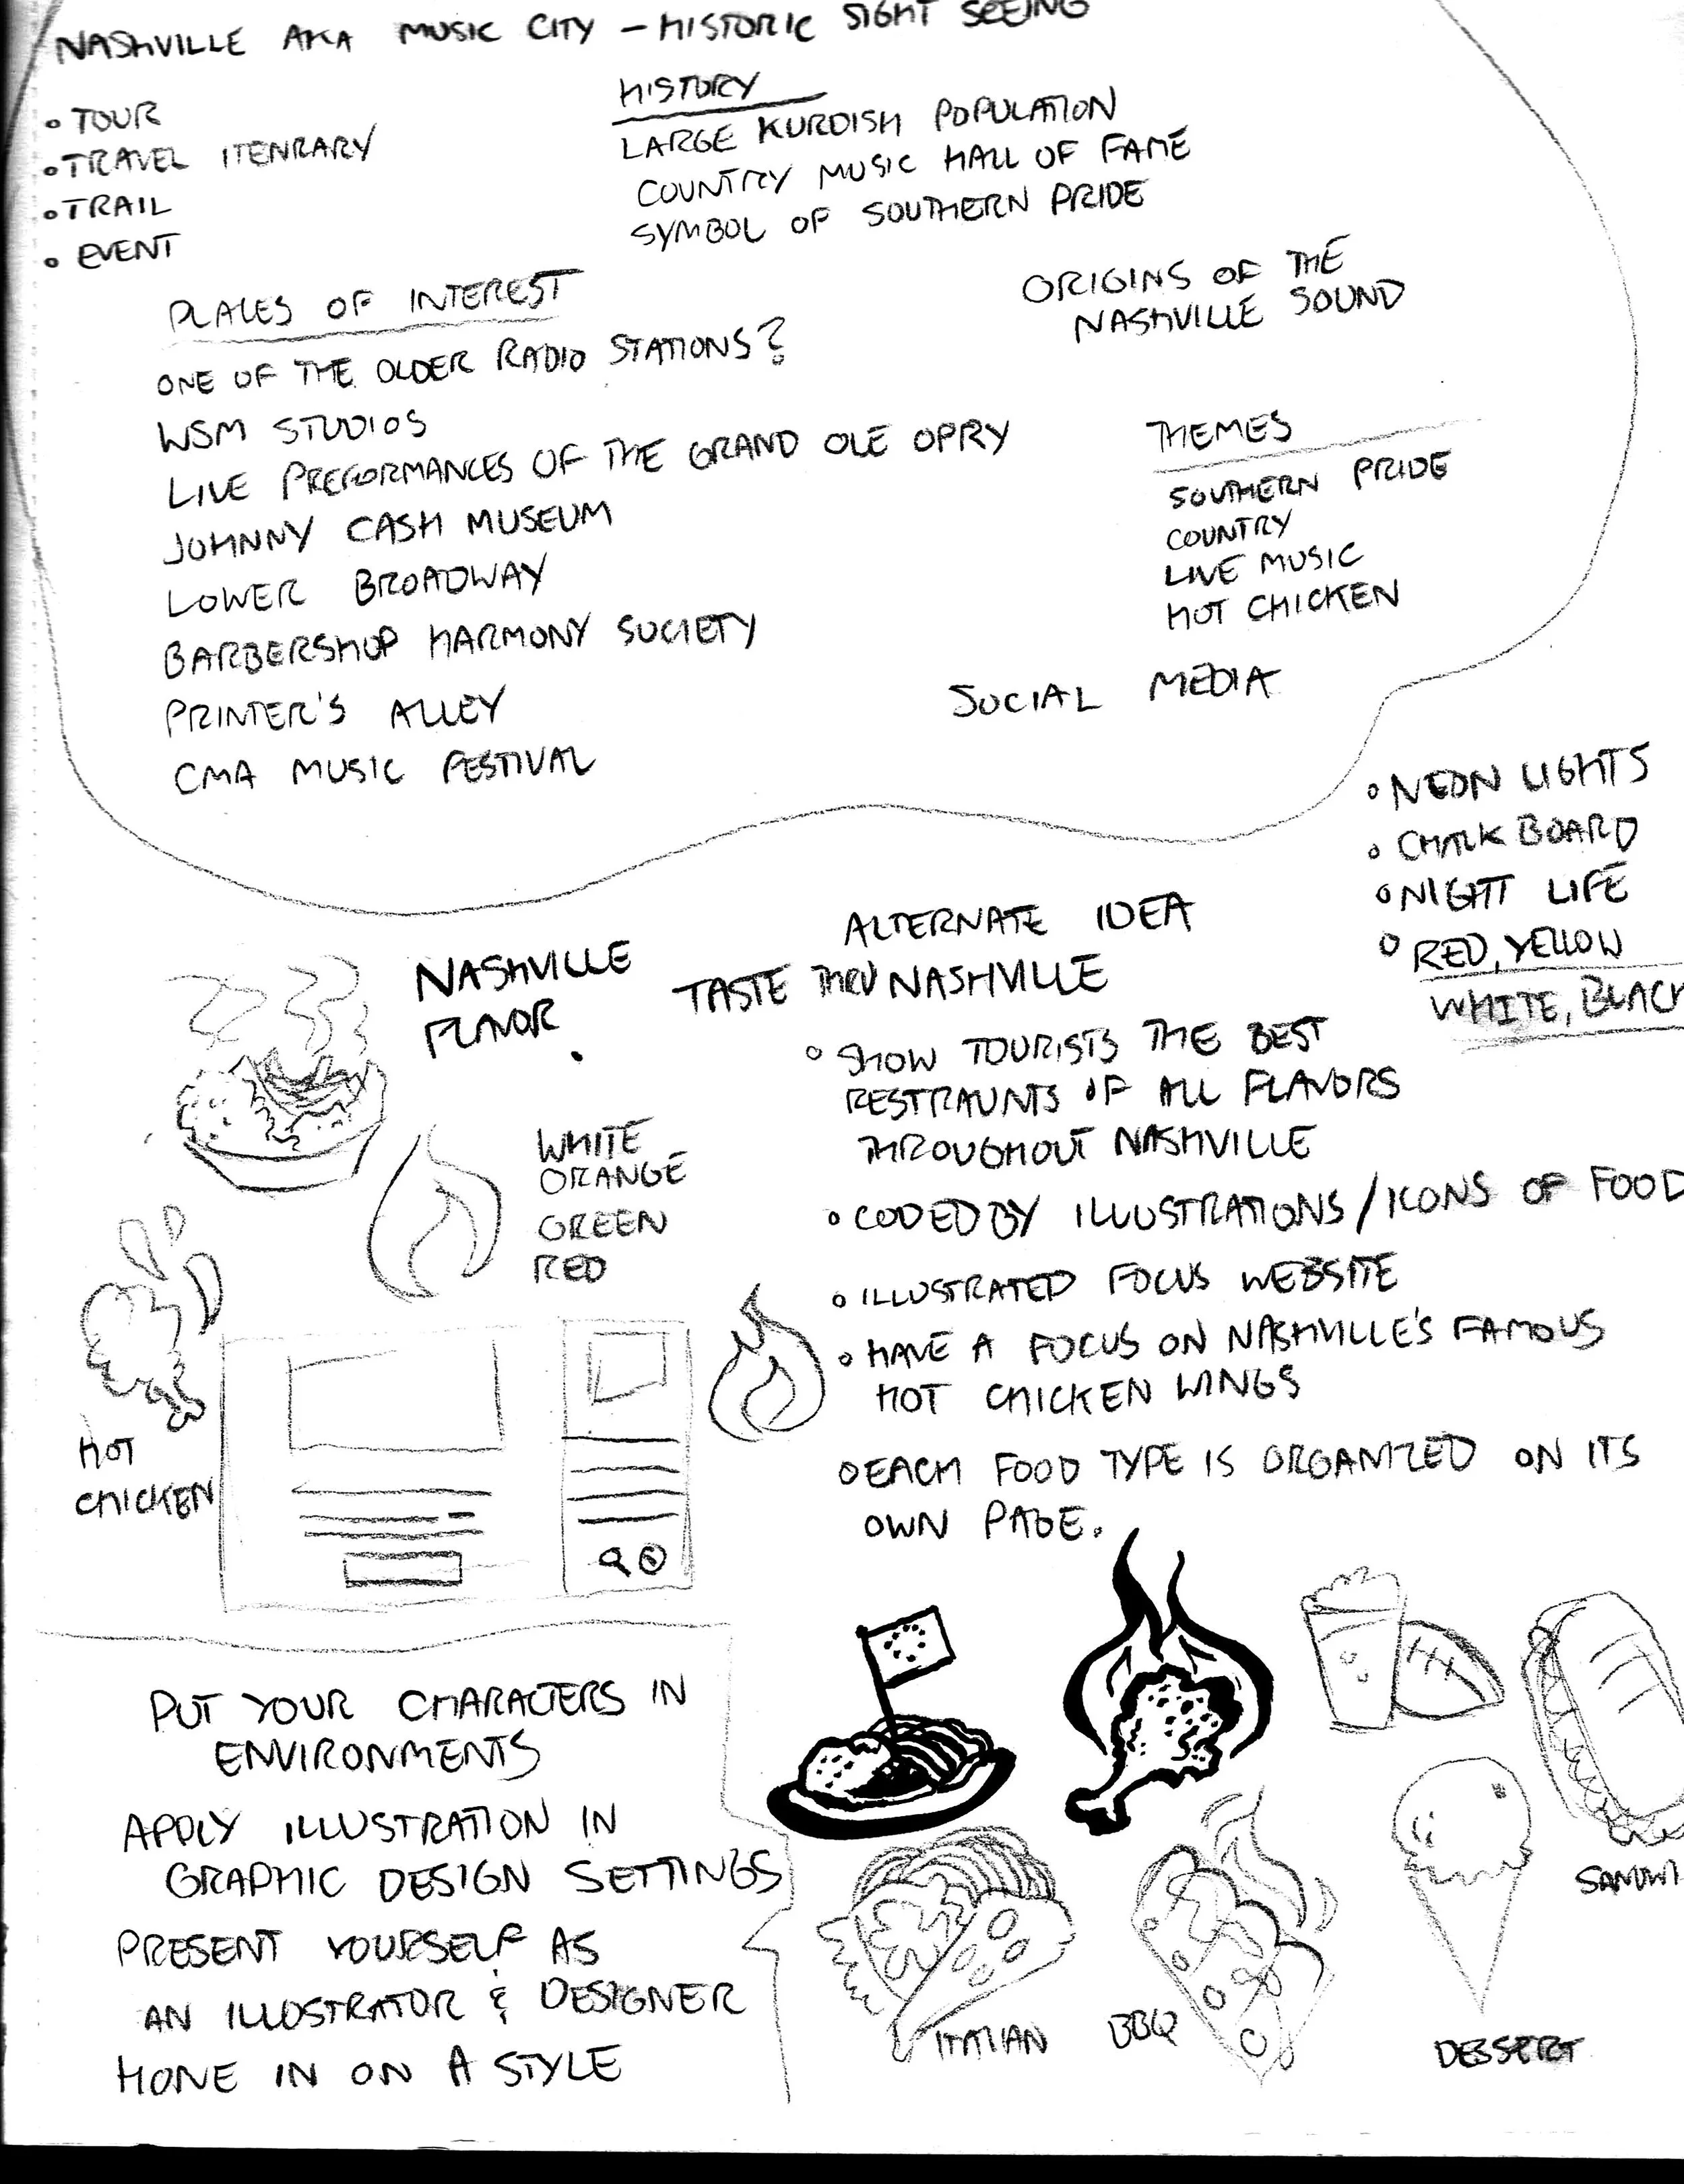 NASHVILLE AKA MUSIC CITY – HISTORIC SIGHT SEEING
• TOUR
• TRAVEL ITENRARY
• TRAIL
• EVENT
HISTORY
LARGE KURDISH POPULATION
COUNTRY MUSIC HALL OF FAME
SYMBOL OF SOUTHERN PRIDE
ORIGINS OF THE
NASHVILLE SOUND
PLACES OF INTEREST
ONE OF THE OLDER RADIO STATIONS?
WSM STUDIOS
LIVE PREFORMANCES OF THE GRAND OLE OPRY
JOHNNY CASH MUSEUM
LOWER BROADWAY
BARBERSHOP HARMONY SOCIETY
PRINTER'S ALLEY
CMA MUSIC FESTIVAL
THEMES
SOUTHERN PRIDE
COUNTRY
LIVE MUSIC
HOT CHICKEN
SOCIAL MEDIA
• NEON LIGHTS
• CHALK BOARD
• NIGHT LIFE
• RED, YELLOW
WHITE, BLACK
NASHVILLE
FLAVOR
WHITE
ORANGE
GREEN
RED
HOT
CHICKEN
ALTERNATE IDEA
TASTE THRU NASHVILLE
• SHOW TOURISTS THE BEST
RESTRAUNTS OF ALL FLAVORS
THROUGHOUT NASHVILLE
• CODED BY ILLUSTRATIONS/ICONS OF FOOD
• ILLUSTRATED FOCUS WEBSITE
• HAVE A FOCUS ON NASHVILLE'S FAMOUS
HOT CHICKEN WINGS
• EACH FOOD TYPE IS ORGANIZED ON ITS
OWN PAGE.
PUT YOUR CHARACTERS IN
ENVIRONMENTS
APPLY ILLUSTRATION IN
GRAPHIC DESIGN SETTINGS
PRESENT YOURSELF AS
AN ILLUSTRATOR & DESIGNER
HONE IN ON A STYLE
ITALIAN
BBQ
DESSERT
SANDWI